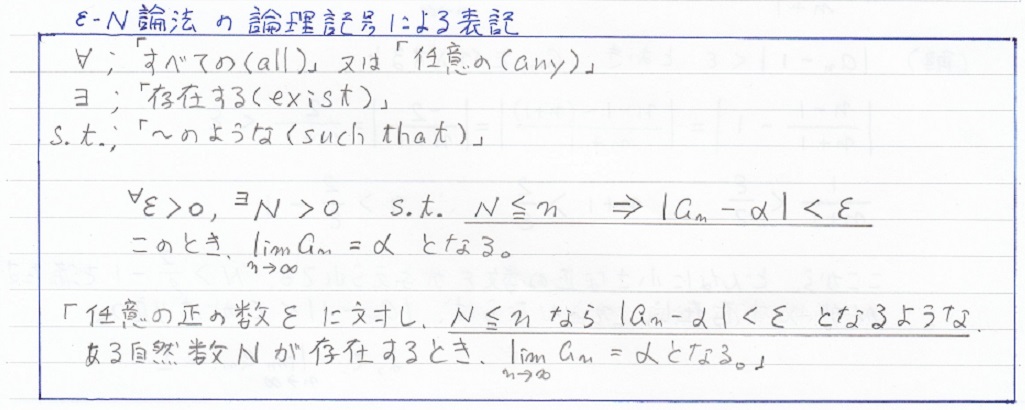 ε-N論法の論理記号による表記
∀;「すべての(all)」又は「任意の(any)」
∃;「存在する(exist)」
s.t.;「～のような(such that)」
∀ε>0, ∃N>0 s.t. N≦n ⇒ |aₙ-α|<ε
このとき、lim aₙ = α となる。
n→∞
「任意の正の数εに対し、N≦nなら|aₙ-α|<εとなるような
ある自然数Nが存在するとき、lim aₙ = αとなる。」
n→∞